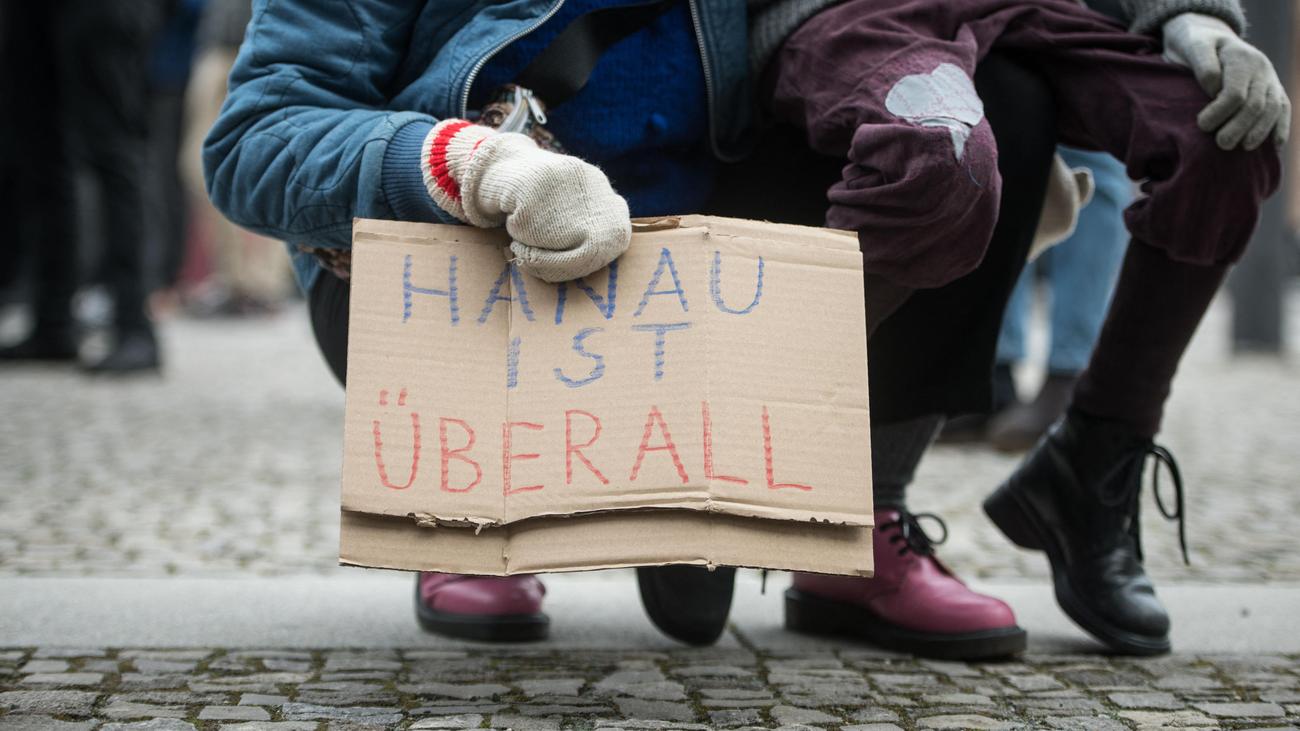 HANAU
IST
ÜBERALL